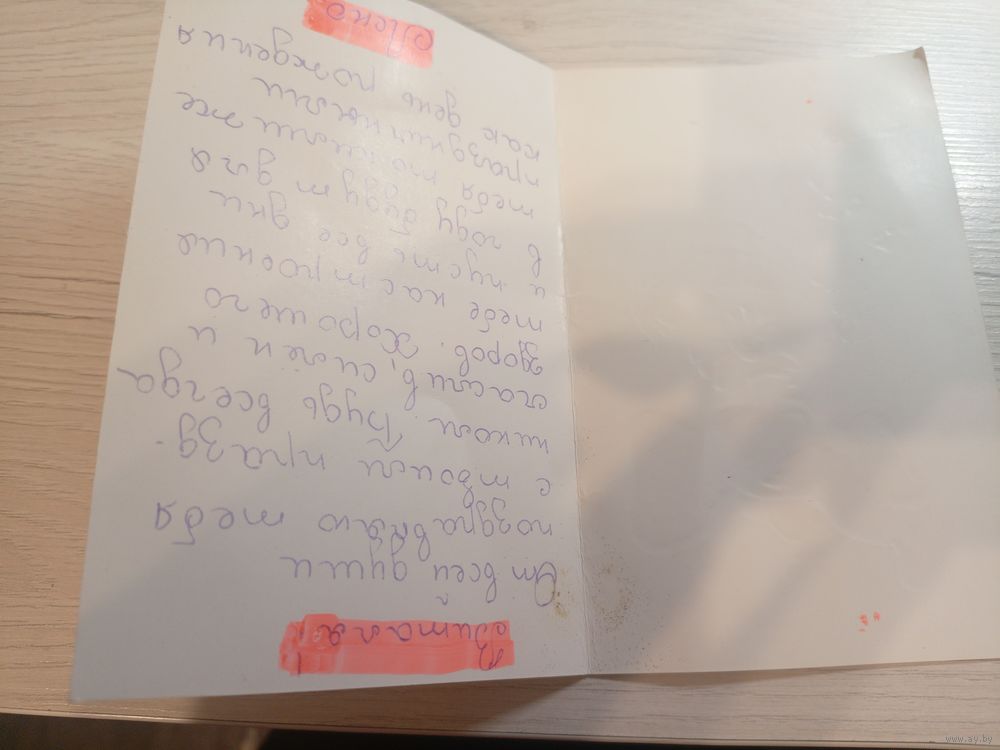 Виталя!
От всей души
поздравляю тебя
с твоим празд-
ником. Будь всегда
счастлив, силён и
здоров. Хорошего
тебе настроения
и пусть все дни
в году будут для
тебя такими же
праздничными
как день рождения
www.ay.by